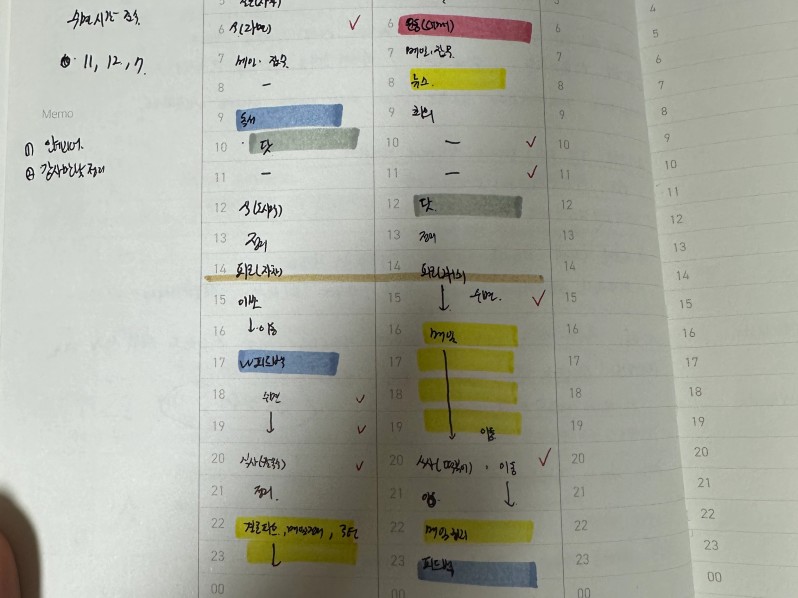 수면시간 준수.
11, 12, 7.
Memo
① 안
② 감사한 일 정리
5
6 식(라면)
7 메일·잡무.
8 —
9 독서
10 닷
11 —
12 식(도시락)
13 정리
14 퇴근(자차)
15 이발
16 ↓·이동
17 W피드백
18 수면
19 ↓
20 식사
21 정리.
22 메일정리,
23 ↓
00
6 운동(어깨)
7 메인·잡무
8 뉴스.
9 회의
10 —
11 —
12 닷.
13 정리
14 퇴근(버스)
15 ↓ 수면.
16 메일
17
18
19 이동
20 식사(떡볶이)·이동
21 이동.
22 메일정리
23 피드백
00
5
6
7
8
9
10
11
12
13
14
15
16
17
18
19
20
21
22
23
00
4
5
6
7
8
9
10
11
12
13
14
15
16
17
18
19
20
21
22
23
00